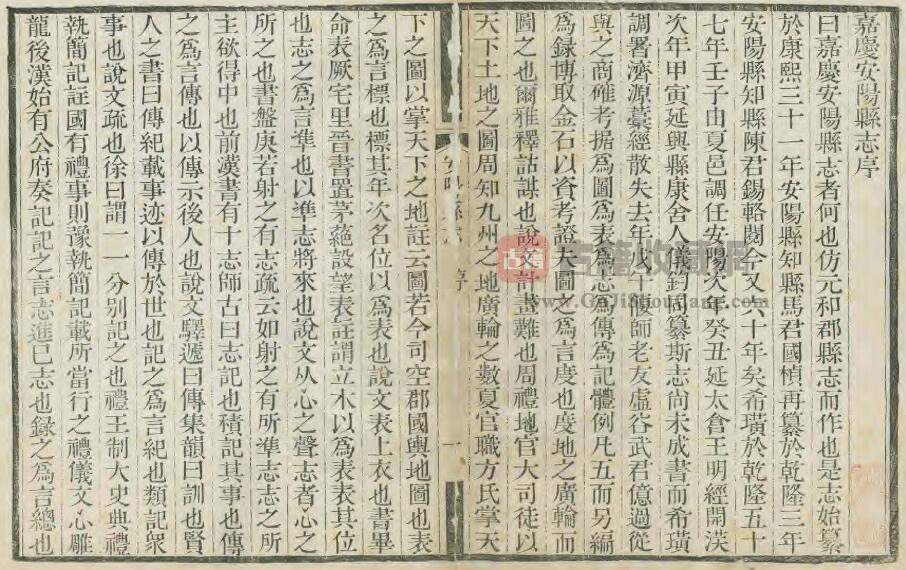 嘉慶安陽縣志序
曰嘉慶安陽縣志者何也仿元和郡縣志而作也是志始纂
於康熙三十一年安陽縣知縣馬君國楨再纂於乾隆三年
安陽縣知縣陳君錫輅閱今又六十年矣希璜於乾隆五十
七年壬子由夏邑調任安陽次年癸丑延太倉王明經開沃
次年甲寅延興縣康舍人儀鈞同纂斯志尚未成書而希璜
調署濟源藁經散失去年戊午偃師老友虛谷武君億過從
與之商確考据為圖為表為志為傳為記體例凡五而另編
為錄博取金石以資考證夫圖之為言度也度地之廣輪而
圖之也爾雅釋詁謀也說文計畫難也周禮地官大司徒以
天下土地之圖周知九州之地廣輪之數夏官職方氏掌天
安陽縣志
序
一
下之圖以掌天下之地註云圖若今司空郡國輿地圖也表
之為言標也標其年次名位以為表也說文表上衣也書畢
命表厥宅里晉書置茅蕝設望表註謂立木以為表表其位
也志之為言準也以準志將來也說文从心之聲志者心之
所之也書盤庚若射之有志疏云如射之有所準志志之所
主欲得中也前漢書有十志師古曰志記也積記其事也傳
之為言傳也以傳示後人也說文驛遞曰傳集韻曰訓也賢
人之書曰傳紀載事迹以傳於世也記之為言紀也類記衆
事也說文疏也徐曰謂一一分別記之也禮王制大史典禮
執簡記註國有禮事則豫執簡記載所當行之禮儀文心雕
龍後漢始有公府奏記記之言志進已志也錄之為言總也
古籍收藏網
www.GuJiShouCang.com